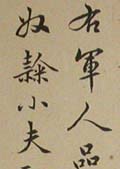 右軍人品
奴隸小夫